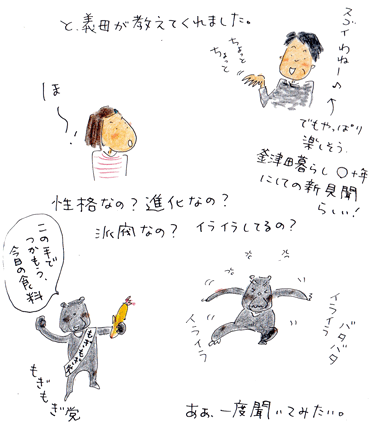 と、義母が教えてくれました。
スゴイわねー♪
ちょっと
ちょっと
でもやっぱり
楽しそう。
釜津田暮らし〇十年
にしての新見聞
らしい!
ほ～!
性格なの?進化なの?
派閥なの? イライラしてるの?
この手で
つかもう、
今日の食料
もぎもぎ
もぎもぎ党
バタバタ
イライラ
イライラ
ああ、一度聞いてみたい。